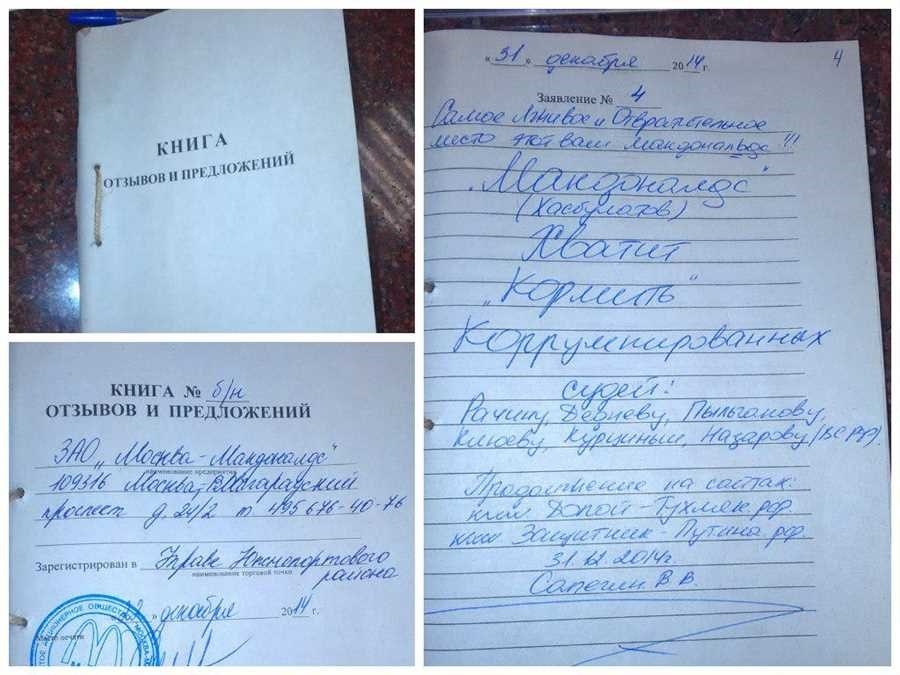 КНИГА
ОТЗЫВОВ И ПРЕДЛОЖЕНИЙ
КНИГА № б/н
ОТЗЫВОВ И ПРЕДЛОЖЕНИЙ
ЗАО „Москва-Макдоналдс"
наименование предприятия
109316 Москва, Волгоградский
проспект д. 24/2 т. 495 676-40-76
Зарегистрирован в Управе Южнопортового
наименование торговой точки
района
» декабря 2014 г.
Место печати
АКЦИОНЕРНОЕ ОБЩЕСТВО
„31„ декабря 2014 г.
4
Заявление № 4
Самое Лживое и Отвратительное
место этот ваш Макдональдс!!!
„Макдоналдс"
(Хасбулатов)
Хватит
„Кормить"
Коррумпированных
судей:
Дебневу, Пыльганову,
Клюеву, Курциньш, Назарову (ВС РФ).
Продолжение на сайтах:
Допой-Тухмек.рф.
Защитник-Путина.рф.
31.12.2014г.
Сапегин В.В.